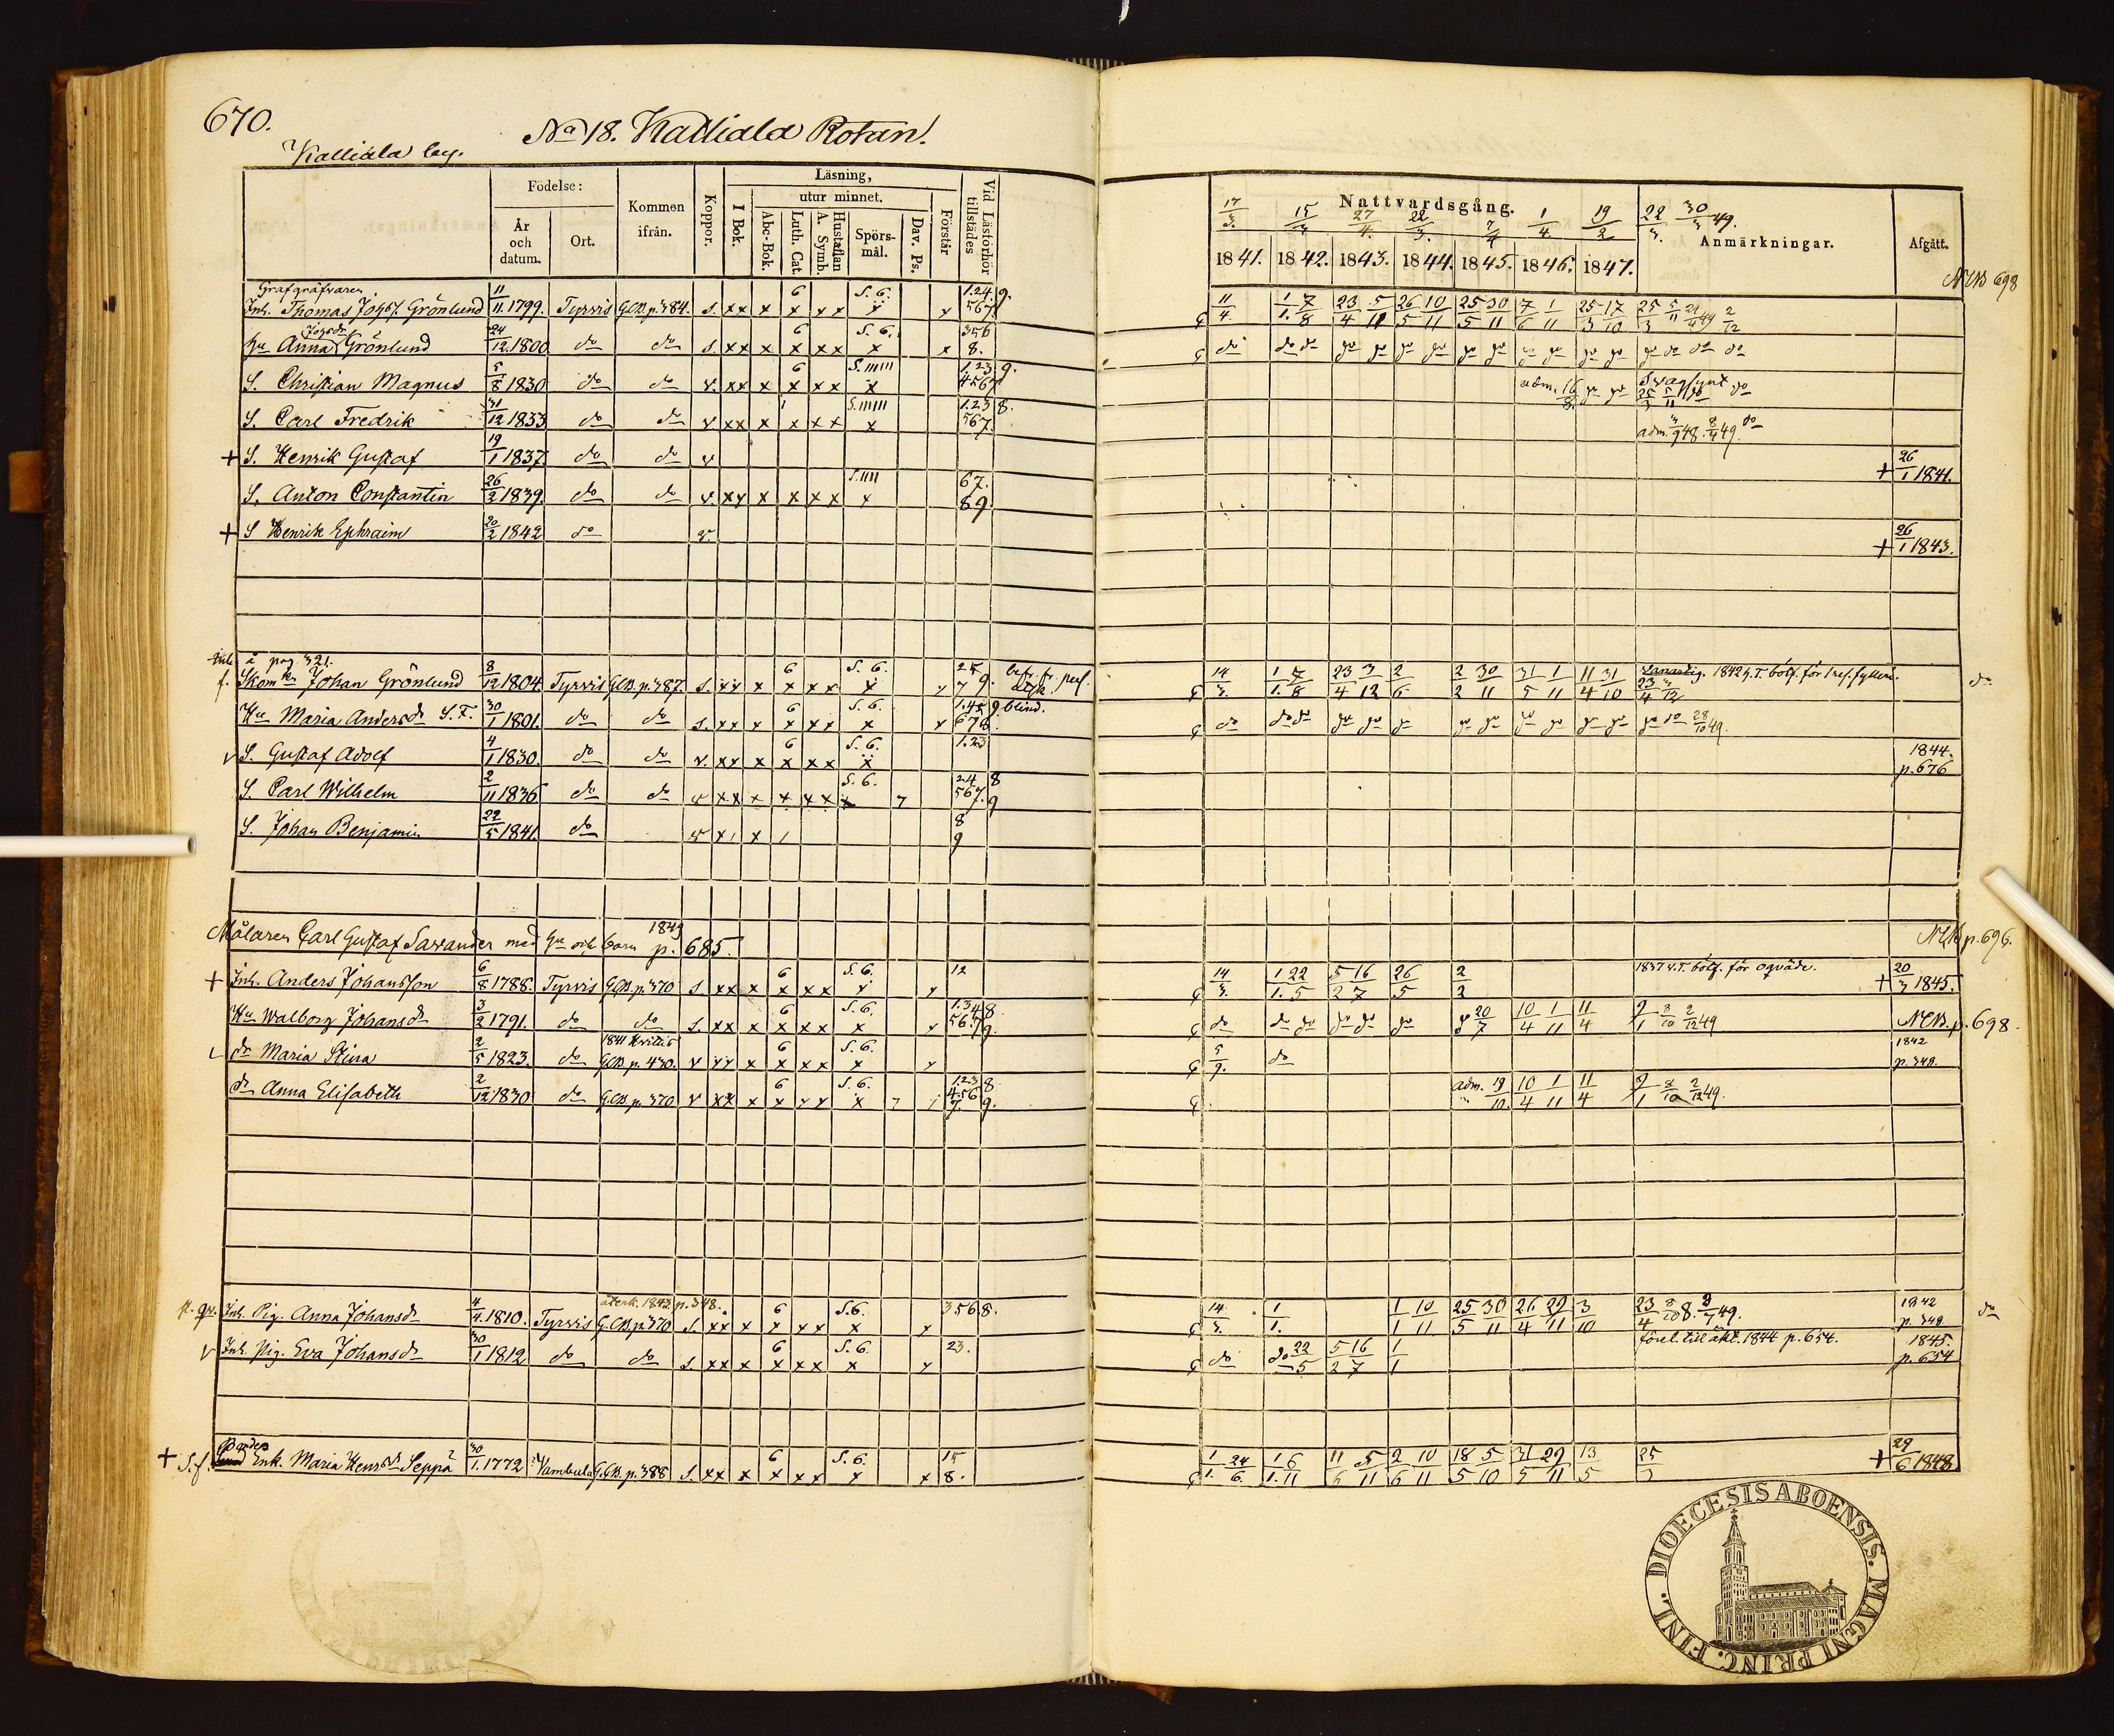 670.
No 18. Kalliala Rotan.
Kalliala by.
Födelse:
År och datum.
Ort.
Kommen ifrån.
Koppor.
Läsning,
I Bok.
utur minnet.
Abc-Bok.
Luth. Cat.
Hustaflan A. Symb.
Spörsmål.
Dav. Ps.
Förstår
Vid Läsförhör tillstädes
Grafgräfvaren
Inh. Thomas Johss. Grönlund 11/11 1799. Tyrvis G.CB.p.384. s. xx x 6 x xx S. 6. x x 1.24. 567. 9.
Johsdr
Hu Anna Grönlund 24/12 1800 do do s. xx x 6 x xx S. 6. x x 356 8.
S. Christian Magnus 5/8 1830 do do v. xx x 6 x xx S. IIIII x 1.23 4567. 9.
S. Carl Fredrik 31/12 1833 do do v xx x 1 x xx S. IIIII x 1.23 567. 8.
+ S. Henrik Gustaf 19/1 1837. do do v
S. Anton Constantin 26/2 1839. do do v. xx x x xx S. IIII x 67. 89.
+ S Henrik Ephraim 20/2 1842 do v.
å pag. 321.
Skomkr Johan Grönlund 8/12 1804. Tyrvis G.CB.p.387. s. xx x 6 x xx S. 6. x x 25 7 9.
Hu Maria Andersdr S.F. 30/1 1801. do do s. xx x 6 x xx S. 6. x x 1.45 678. 9 blind.
v S. Gustaf Adolf 4/1 1830. do do v. xx x 6 x xx S. 6. x 1.23
S. Carl Wilhelm 2/11 1836 do do v xx x x xx S. 6. x 7 24 567. 8 9
S. Johan Benjamin 22/5 1841. do v x x 8 9
Målaren Carl Gustaf Savander med hu och barn 1849 p. 685.
+ Inh. Anders Johansson 6/8 1788. Tyrvis G.CB.p.370 s. xx x 6 x xx S. 6. x x 12
Hu Walborg Johansdr 3/2 1791. do do s. xx x 6 x xx S. 6. x x 1.34 567 8 9.
dr Maria Stina 2/5 1823. do 1841 G.CB. p. 430. v xx x 6 x xx S. 6. x x
dr Anna Elisabeth 2/12 1830 do G.CB. p. 370 v xx x 6 x xx S. 6. x 7 1.23 456 7. 8 9.
Inh. Pig. Anna Johansdr 4/4 1810. Tyrvis återk. 1842 p. 348. G.CB.p.370 s. xx x 6 x xx S. 6. x x 356 8.
v Inh. Pig. Eva Johansdr 30/1 1812 do do s. xx x 6 x xx S. 6. x x 23.
+ S.f. Enk. Maria Henrsdr Seppä 30/1 1772 Vambula G.CB.p.388 s. xx x 6 x xx S. 6. x x 15 8.
Nattvardsgång.
17/3. 15/4 27/4. 22/3. 7/4 1/4. 19/2 22/3. 30/3 49.
1841. 1842. 1843. 1844. 1845. 1846. 1847.
Anmärkningar.
Afgått.
NCB 698
11/4. 1/1. 7/8 23/4 5/11 26/5 10/11 25/5 30/11 7/6 1/11 25/3 17/10 25/3 5/11 21/4 49 2/12
do do do do do do do do do do do do do do do do do
adm. 16/8. do do Svagsynt 25/3 5/11 do
adm. 3/9 48. 8/4 49. do
+ 26/1 1841.
+ 26/1 1843.
14/3. 1/1. 7/8 23/4 3/12 2/6 2/2 30/11 31/5 1/11 11/4 31/10 1842 h. T. bötf. för 1 res. fylleri. 23/4 3/12 do
do do do do do do do do do do do do do do 28/10 49.
1844. p. 676
NCB p. 696.
14/3. 1/1. 22/5 5/2 16/7 26/5 2/2 1837 v.T. bötf. för oqväde. + 20/3 1845.
do do do do do do 20/7 10/4 1/11 11/4 7/1 8/10 2/12 49 NCB. p. 698.
5/9. do 1842 p. 348.
adm. 19/10. 10/4 1/11 11/4 7/1 8/10 2/12 49.
14/3. 1/1. 1/1 10/11 25/5 30/11 26/4 29/11 3/10 23/4 8/10 8. 9/4 49. 1842 p. 348 do
do do 22/5 5/2 16/7 1/1 förel. till äkt. 1844 p. 654. 1845. p. 654
1/1. 24/6. 1/1. 6/11 11/6 5/11 2/6 10/11 18/5 5/10 31/5 29/11 13/5 25/3 + 29/6 1848
DIOECESIS ABOENSIS. MAGNI PRINC. FINL.